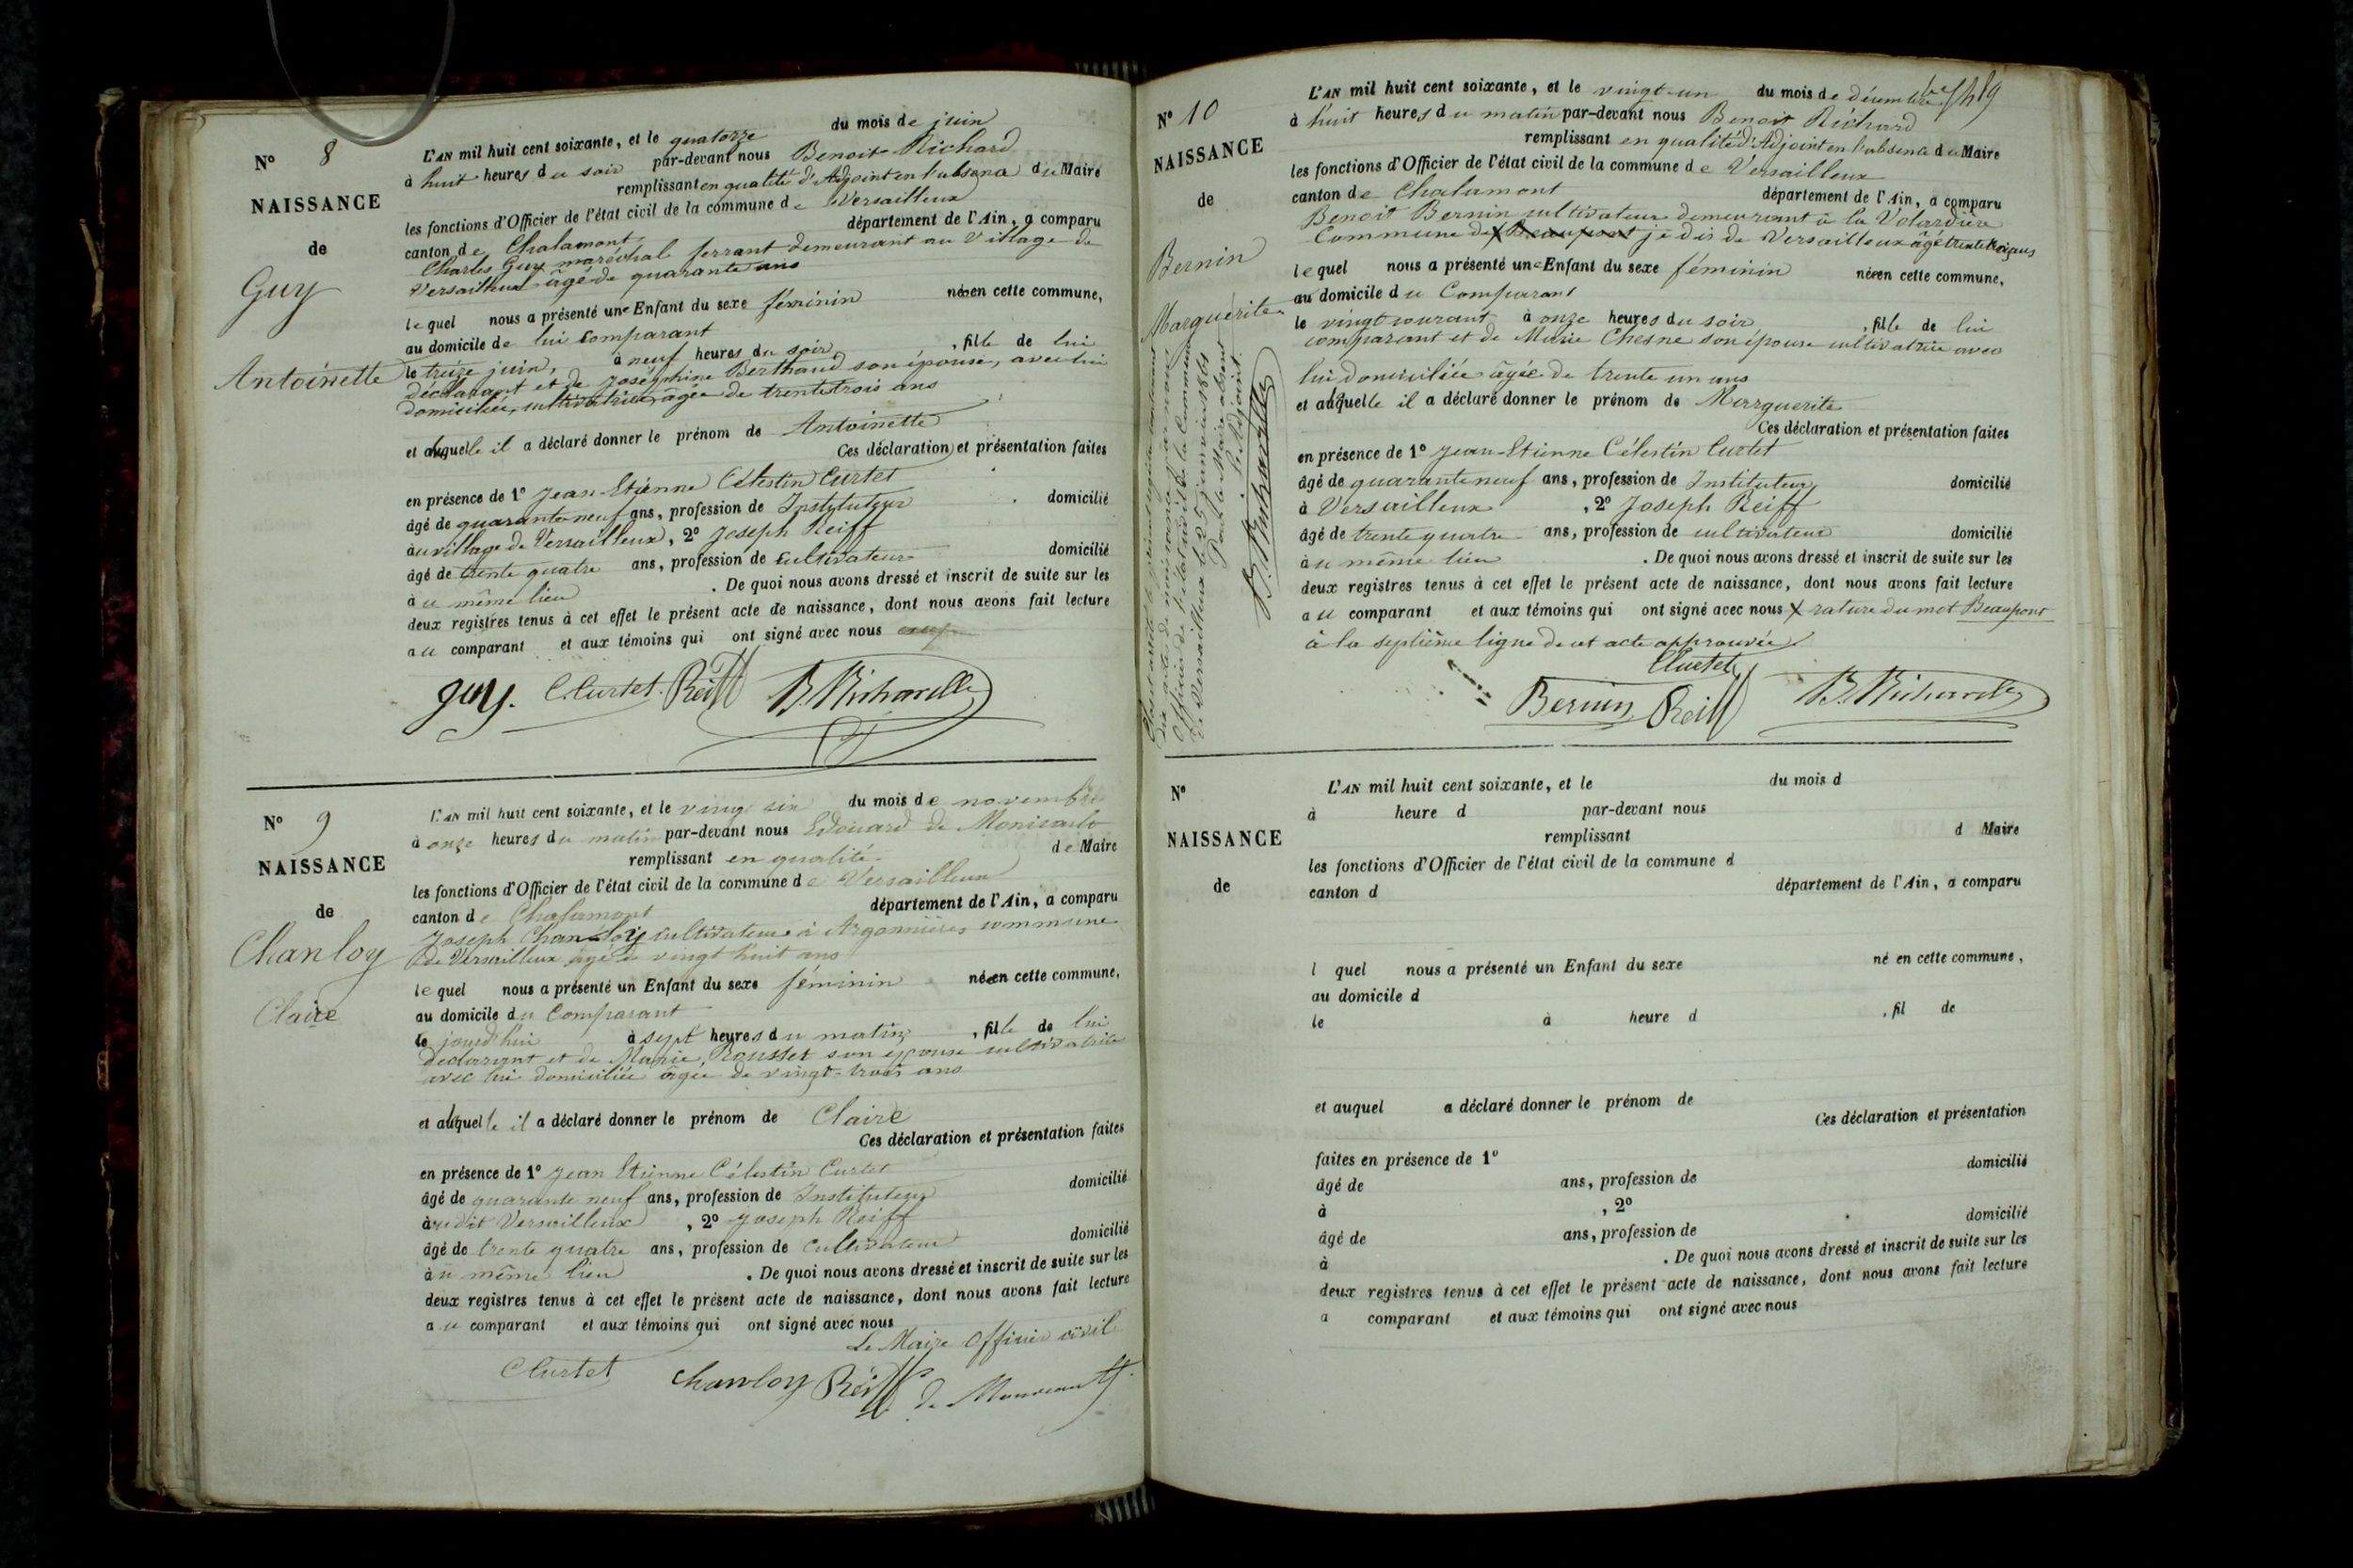 N° 8
NAISSANCE
de
Guy
Antoinette
L'AN mil huit cent soixante, et le quatorze du mois de juin
à huit heures du soir par-devant nous Benoit Richard
remplissant en qualité d'Adjoint en l'absence du Maire
les fonctions d'Officier de l'état civil de la commune de Versailleux
canton de Chalamont département de l'Ain, a comparu
Charles Guy maréchal ferrant demeurant au Village de
Versailleux âgé de quarante ans
lequel nous a présenté une Enfant du sexe féminin née en cette commune,
au domicile de lui comparant
le treize juin, à neuf heures du soir, fille de lui
déclarant et de Joséphine Berthaud son épouse, avec lui
domiciliée, cultivatrice, âgée de trente trois ans
et à laquelle il a déclaré donner le prénom de Antoinette
Ces déclaration et présentation faites
en présence de 1° Jean-Etienne Célestin Curtet
âgé de quarante-neuf ans, profession de Instituteur domicilié
au village de Versailleux, 2° Joseph Reiff
âgé de trente quatre ans, profession de cultivateur domicilié
au même lieu . De quoi nous avons dressé et inscrit de suite sur les
deux registres tenus à cet effet le présent acte de naissance, dont nous avons fait lecture
au comparant et aux témoins qui ont signé avec nous
Guy. C. Curtet Reiff B. Richard
N° 9
NAISSANCE
de
Chanloy
Claire
L'AN mil huit cent soixante, et le vingt six du mois de novembre
à onze heures du matin par-devant nous Edouard de
remplissant en qualité de Maire
les fonctions d'Officier de l'état civil de la commune de Versailleux
canton de Chalamont département de l'Ain, a comparu
Joseph Chanloy cultivateur à Argonnières commune
de Versailleux âgé de vingt huit ans
lequel nous a présenté un Enfant du sexe féminin née en cette commune,
au domicile du Comparant
le jourd'hui à sept heures du matin, fille de lui
déclarant et de Marie Rousset son épouse cultivatrice
avec lui domiciliée âgée de vingt-trois ans
et à laquelle il a déclaré donner le prénom de Claire
Ces déclaration et présentation faites
en présence de 1° Jean Etienne Célestin Curtet
âgé de quarante neuf ans, profession de Instituteur domicilié
au dit Versailleux, 2° Joseph Reiff
âgé de trente quatre ans, profession de Cultivateur domicilié
au même lieu . De quoi nous avons dressé et inscrit de suite sur les
deux registres tenus à cet effet le présent acte de naissance, dont nous avons fait lecture
au comparant et aux témoins qui ont signé avec nous
Le Maire Officier civil
C Curtet Chanloy Reiff de
N° 10
NAISSANCE
de
Bernin
Marguerite
L'AN mil huit cent soixante, et le vingt-un du mois de décembre
à huit heures du matin par-devant nous Benoit Richard
remplissant en qualité d'Adjoint en l'absence du Maire
les fonctions d'Officier de l'état civil de la commune de Versailleux
canton de Chalamont département de l'Ain, a comparu
Benoit Bernin cultivateur demeurant à la Volardière
Commune de X Beaupont je dis de Versailleux âgé trente trois ans
lequel nous a présenté une Enfant du sexe féminin née en cette commune,
au domicile du Comparant
le vingt courant à onze heures du soir, fille de lui
comparant et de Marie Chesne son épouse cultivatrice avec
lui domiciliée âgée de trente un ans
et à laquelle il a déclaré donner le prénom de Marguerite
Ces déclaration et présentation faites
en présence de 1° Jean-Etienne Célestin Curtet
âgé de quarante neuf ans, profession de Instituteur domicilié
à Versailleux, 2° Joseph Reiff
âgé de trente quatre ans, profession de cultivateur domicilié
au même lieu . De quoi nous avons dressé et inscrit de suite sur les
deux registres tenus à cet effet le présent acte de naissance, dont nous avons fait lecture
au comparant et aux témoins qui ont signé avec nous X rature du mot Beaupont
à la septième ligne de cet acte approuvée
C Curtet
Bernin Reiff B. Richard
N°
NAISSANCE
de
L'AN mil huit cent soixante, et le du mois d
à heure d par-devant nous
remplissant d Maire
les fonctions d'Officier de l'état civil de la commune d
canton d département de l'Ain, a comparu
l quel nous a présenté un Enfant du sexe né en cette commune,
au domicile d
le à heure d , fil de
et auquel a déclaré donner le prénom de
Ces déclaration et présentation
faites en présence de 1°
âgé de ans, profession de domicilié
à , 2°
âgé de ans, profession de domicilié
à . De quoi nous avons dressé et inscrit de suite sur les
deux registres tenus à cet effet le présent acte de naissance, dont nous avons fait lecture
a comparant et aux témoins qui ont signé avec nous